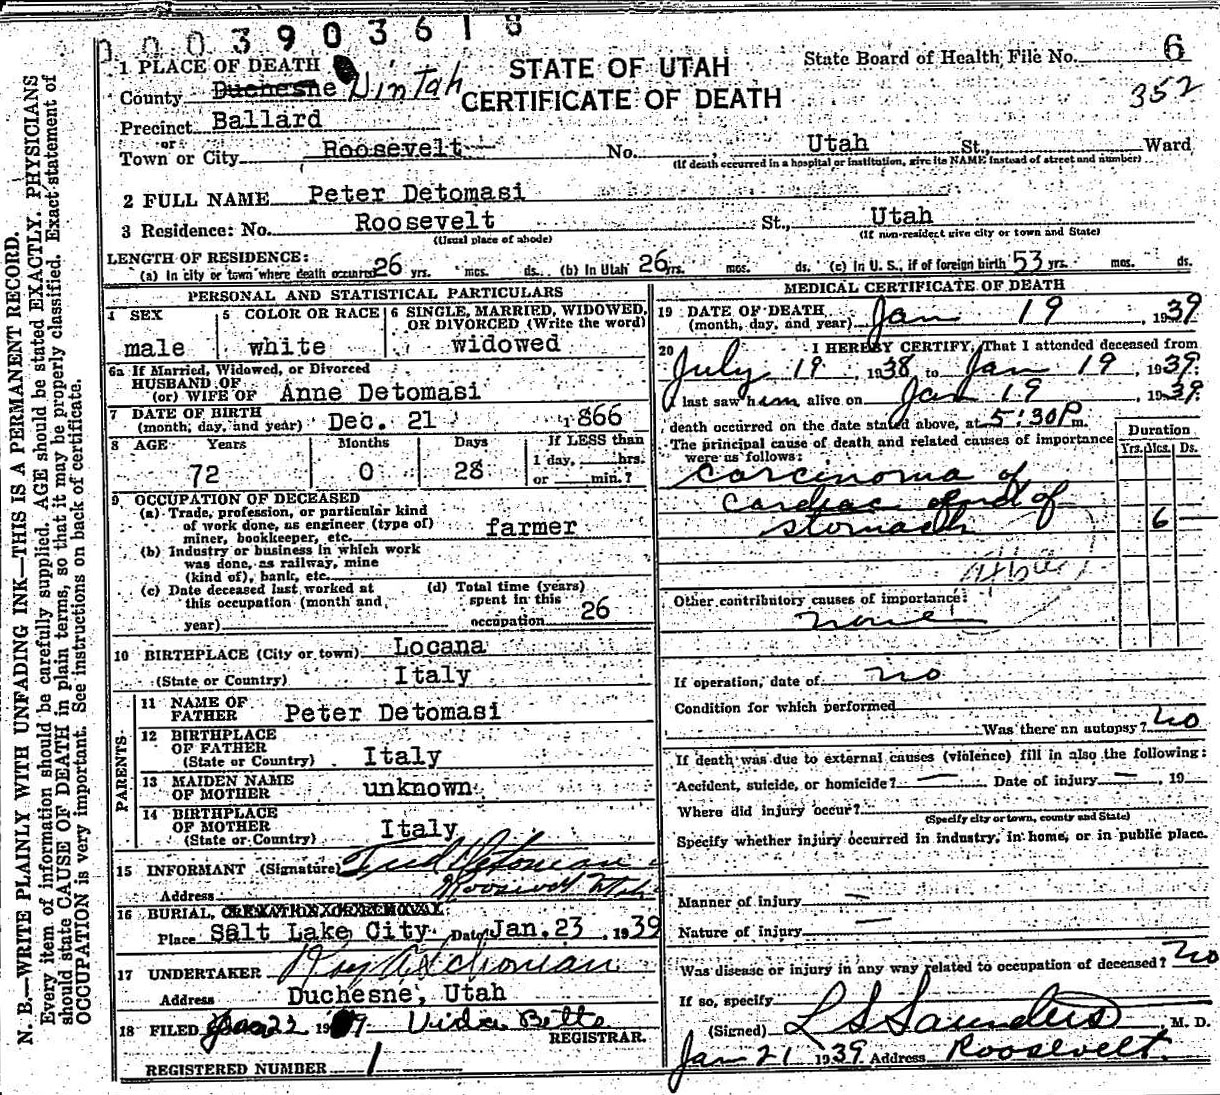 0003903618
1 PLACE OF DEATH
STATE OF UTAH
CERTIFICATE OF DEATH
State Board of Health File No. 6
352
County Duchesne Uintah
Precinct Ballard
or
Town or City Roosevelt No. Utah St., Ward
(If death occurred in a hospital or institution, give its NAME instead of street and number)
2 FULL NAME Peter Detomasi
3 Residence: No. Roosevelt St., Utah
(Usual place of abode) (If non-resident give city or town and State)
LENGTH OF RESIDENCE:
(a) In city or town where death occured 26 yrs. mos. ds. (b) In Utah 26 yrs. mos. ds. (c) In U. S., if of foreign birth 53 yrs. mos. ds.
PERSONAL AND STATISTICAL PARTICULARS
4 SEX
male
5 COLOR OR RACE
white
6 SINGLE, MARRIED, WIDOWED, OR DIVORCED (Write the word)
widowed
6a If Married, Widowed, or Divorced
HUSBAND OF
(or) WIFE OF Anne Detomasi
7 DATE OF BIRTH
(month, day, and year) Dec. 21 1866
8 AGE Years Months Days If LESS than
72 0 28 1 day, hrs.
or min.?
9 OCCUPATION OF DECEASED
(a) Trade, profession, or particular kind
of work done, as engineer (type of)
miner, bookkeeper, etc. farmer
(b) Industry or business in which work
was done, as railway, mine
(kind of), bank, etc.
(c) Date deceased last worked at
this occupation (month and
year)
(d) Total time (years)
spent in this
occupation 26
10 BIRTHPLACE (City or town) Locana
(State or Country) Italy
PARENTS
11 NAME OF
FATHER Peter Detomasi
12 BIRTHPLACE
OF FATHER
(State or Country) Italy
13 MAIDEN NAME
OF MOTHER unknown
14 BIRTHPLACE
OF MOTHER
(State or Country) Italy
15 INFORMANT (Signature)
Address Roosevelt Utah
16 BURIAL, CREMATION OR REMOVAL
Place Salt Lake City Date Jan. 23, 1939
17 UNDERTAKER
Address Duchesne, Utah
18 FILED Jan 22 19 Vida Betts
REGISTRAR.
REGISTERED NUMBER 1
MEDICAL CERTIFICATE OF DEATH
19 DATE OF DEATH
(month, day, and year) Jan 19, 1939
20 I HEREBY CERTIFY, That I attended deceased from
July 19 1938 to Jan 19, 1939.
I last saw him alive on Jan 19, 1939.
death occurred on the date stated above, at 5:30P m.
The principal cause of death and related causes of importance
were as follows:
Duration
Yrs. Mos. Ds.
Carcinoma of
Cardiac end of
stomach 6
Other contributory causes of importance:
none
If operation, date of no
Condition for which performed
Was there an autopsy? No
If death was due to external causes (violence) fill in also the following:
Accident, suicide, or homicide? — Date of injury —, 19
Where did injury occur?
(Specify city or town, county and State)
Specify whether injury occurred in industry, in home, or in public place.
Manner of injury —
Nature of injury —
Was disease or injury in any way related to occupation of deceased? No
If so, specify
(Signed) L S Saunders M. D.
Jan 21 1939 Address Roosevelt.
N. B.—WRITE PLAINLY WITH UNFADING INK—THIS IS A PERMANENT RECORD.
Every item of information should be carefully supplied. AGE should be stated EXACTLY. PHYSICIANS
should state CAUSE OF DEATH in plain terms, so that it may be properly classified. Exact statement of
OCCUPATION is very important. See instructions on back of certificate.